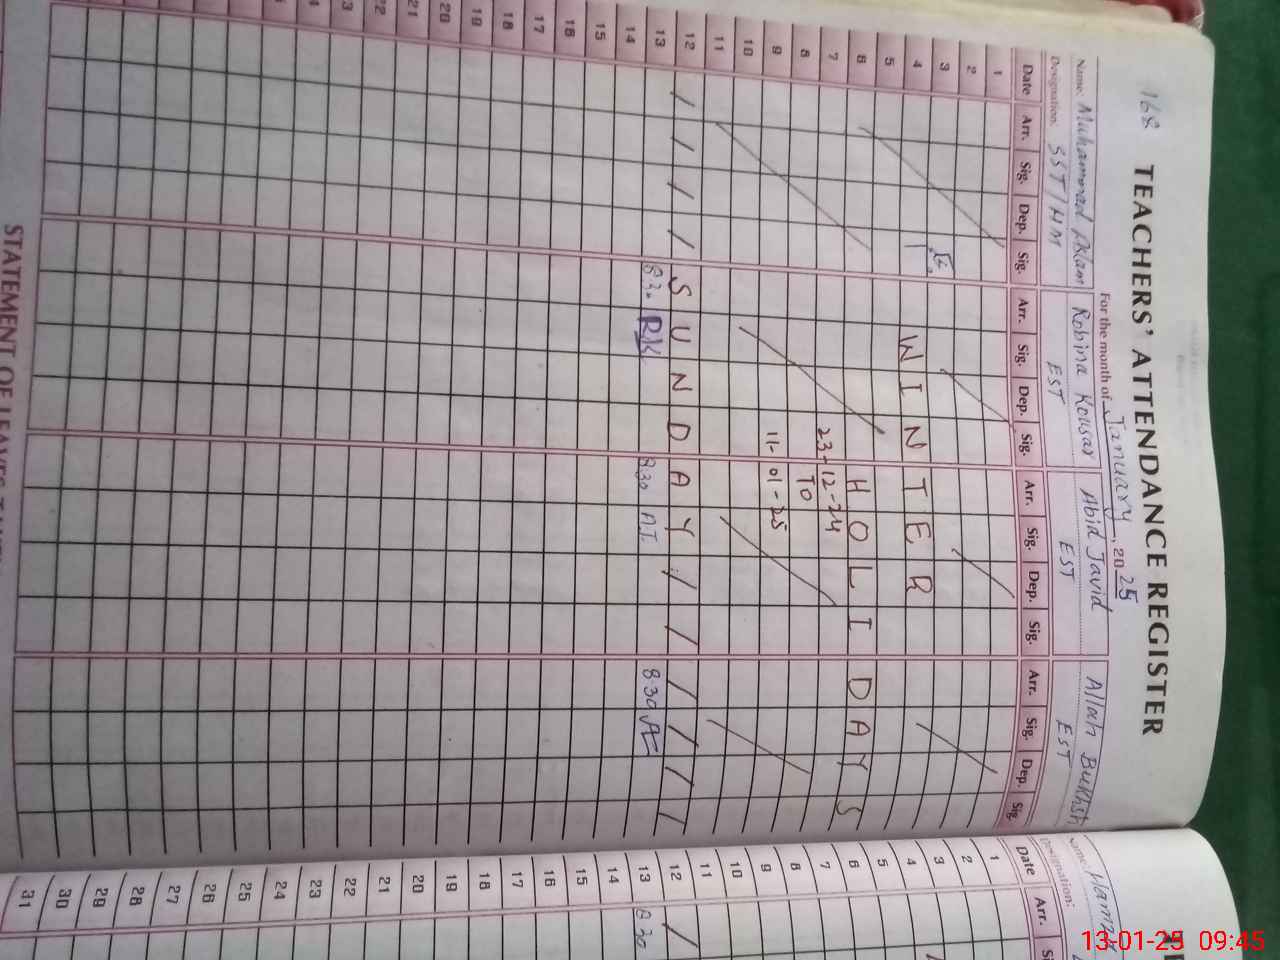 168
TEACHERS' ATTENDANCE REGISTER
For the month of January, 2025
Name: Muhammad Aslam Robina Kousar Abid Javid Allah Bukhsh
Designation: SST/HM EST EST EST
Date Arr. Sig. Dep. Sig. Arr. Sig. Dep. Sig. Arr. Sig. Dep. Sig. Arr. Sig. Dep. Sig.
1
2
3
4 WINTER
5
6 HOLIDAYS
7 23-12-24
8 TO
9 11-01-25
10
11
12 / / / / SUNDAY / / / / / /
13 830 RK 8:30 A.J. 8:30
14
15
18
17
18
19
20
21
22
23
STATEMENT OF
Name:
Designation:
Date Arr.
1
2
3
4
5
6
7
8
9
10
11
12 /
13 830
14
15
16
17
18
19
20
21
22
23
24
25
26
27
28
29
30
31
13-01-25 09:45